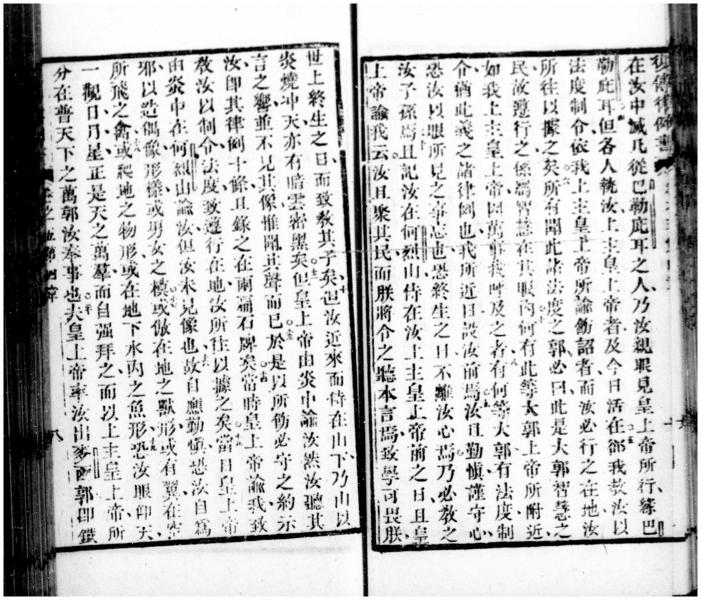 復傳律例書
在汝中滅凡從巴勒庇耳之人乃汝親眼見皇上帝所行緣巴
勒庇耳但各人執汝上主皇上帝者及今日活在卽我敎汝以
法度制令依我上主皇上帝所諭飭詔者而汝必行之在地汝
所往以據之矣所有聞此諸法度之郭必曰此是大郭智慧之
民故遵行之係爲智慧在其眼內何有此等大郭上帝所附近
如我上主皇上帝因萬事我呼及之者有何等大郭有法度制
令猶此義之諸律例也我所近日設汝前焉汝且勤愼謹守心
恐汝以眼所見之事忘也恐終生之日不離汝心焉乃必敎之
汝子孫焉且記汝在何烈山侍在汝上主皇上帝前之日且皇
上帝諭我云汝且聚其民而朕將令之聽本言焉致學可畏朕
世上終生之日而致敎其子矣但汝近來而侍在山下乃山以
炎燒冲天亦有暗雲密黑矣但皇上帝由炎中諭汝然汝聽其
言之響並不見其像惟聞其聲而已於是以所飭必守之約示
汝卽其律例十條且錄之在兩扁石牌矣當時皇上帝諭我致
敎汝以制令法度致遵行在地汝所往以據之矣當日皇上帝
由炎中在何烈山諭汝但汝未見像也故自應勤愼恐汝自爲
邪以造偶像形樣或男女之模或倣在地之獸形或有翼在空
所飛之禽或爬地之物形或在地下水內之魚形恐汝眼仰天
一觀日月星正是天之萬羣而自强拜之而以上主皇上帝所
分在普天下之萬郭汝奉事也夫皇上帝率汝出麥西郭卽鐵
八